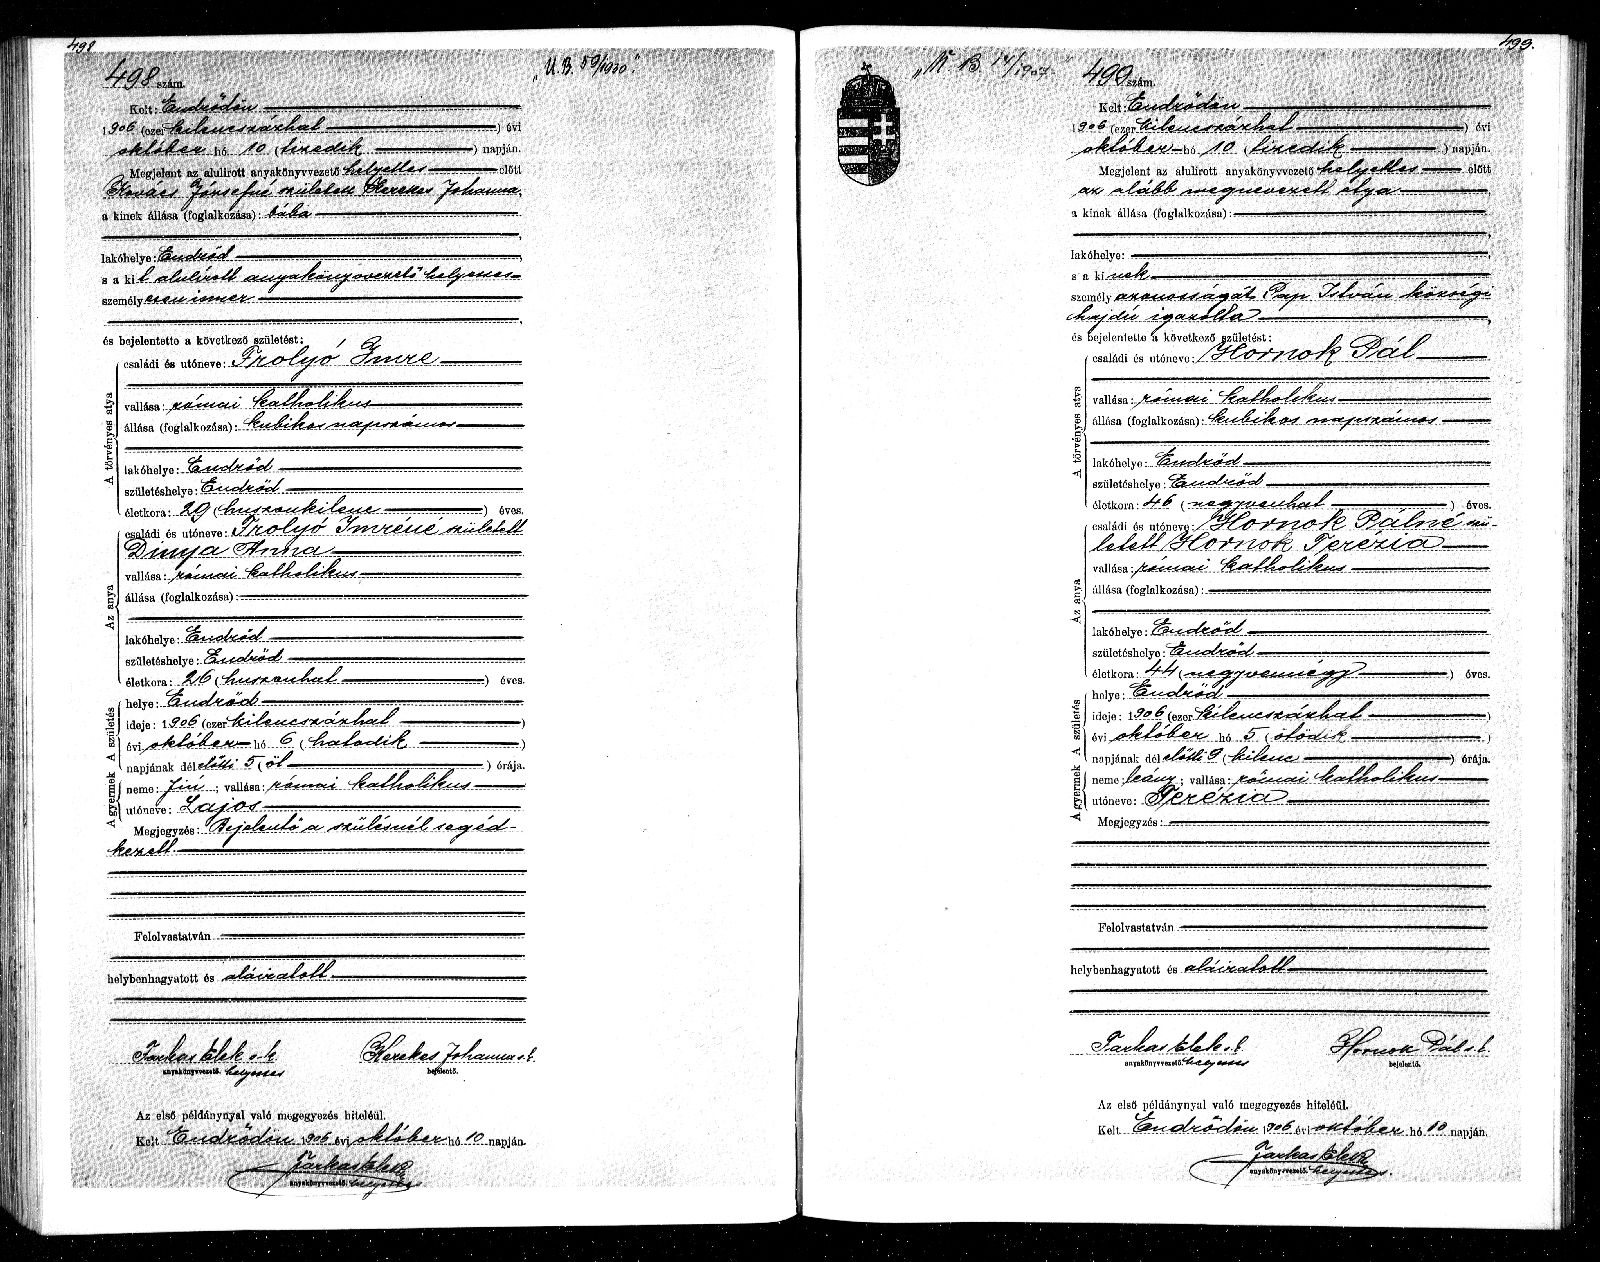 498
498 szám.
„U.B. 59/1930.”
Kelt: Endrődön
1906 (ezer kilencszázhat) évi
október hó 10 (tizedik) napján.
Megjelent az alulirott anyakönyvvezető helyettes előtt
Kovács Józsefné született Kerekes Johanna,
a kinek állása (foglalkozása): bába
lakóhelye: Endrőd
s a kit alulirott anyakönyvvezető helyettes
személyesen ismer
és bejelentette a következő születést:
A törvényes atya
családi és utóneve: Frolyó Imre
vallása: római katholikus
állása (foglalkozása): kubikos napszámos
lakóhelye: Endrőd
születéshelye: Endrőd
életkora: 29 (huszonkilenc) éves.
Az anya
családi és utóneve: Frolyó Imréné született
Dinya Anna
vallása: római katholikus
állása (foglalkozása):
lakóhelye: Endrőd
születéshelye: Endrőd
életkora: 26 (huszonhat) éves.
A születés
helye: Endrőd
ideje: 1906 (ezer kilencszázhat)
évi október hó 6 (hatodik)
napjának dél előtti 5 (öt) órája.
A gyermek
neme: fiú; vallása: római katholikus
utóneve: Lajos
Megjegyzés: Bejelentő a szülésnél segéd-
kezett.
Felolvastatván
helybenhagyatott és aláiratott
Farkas Elek s.k. Kerekes Johanna s.k.
anyakönyvvezető. helyettes bejelentő.
Az első példánynyal való megegyezés hiteléül.
Kelt Endrődön 1906 évi október hó 10 napján.
Farkas Elek
anyakönyvvezető. helyettes
499.
„K B. 14/1907.”
499 szám.
Kelt: Endrődön
1906 (ezer kilencszázhat) évi
október hó 10 (tizedik) napján.
Megjelent az alulirott anyakönyvvezető helyettes előtt
az alább megnevezett atya
a kinek állása (foglalkozása):
lakóhelye:
s a kinek
személy azonosságát Pap István községi
hajdú igazolta
és bejelentette a következő születést:
A törvényes atya
családi és utóneve: Hornok Pál
vallása: római katholikus
állása (foglalkozása): kubikos napszámos
lakóhelye: Endrőd
születéshelye: Endrőd
életkora: 46 (negyvenhat) éves.
Az anya
családi és utóneve: Hornok Pálné szü-
letett Hornok Terézia
vallása: római katholikus
állása (foglalkozása):
lakóhelye: Endrőd
születéshelye: Endrőd
életkora: 44 (negyvennégy) éves.
A születés
helye: Endrőd
ideje: 1906 (ezer kilencszázhat)
évi október hó 5 (ötödik)
napjának dél előtti 9 (kilenc) órája.
A gyermek
neme: leány; vallása: római katholikus
utóneve: Terézia
Megjegyzés:
Felolvastatván
helybenhagyatott és aláiratott
Farkas Elek s.k. Hornok Pál s.k.
anyakönyvvezető. helyettes bejelentő.
Az első példánynyal való megegyezés hiteléül.
Kelt Endrődön 1906 évi október hó 10 napján.
Farkas Elek
anyakönyvvezető. helyettes.